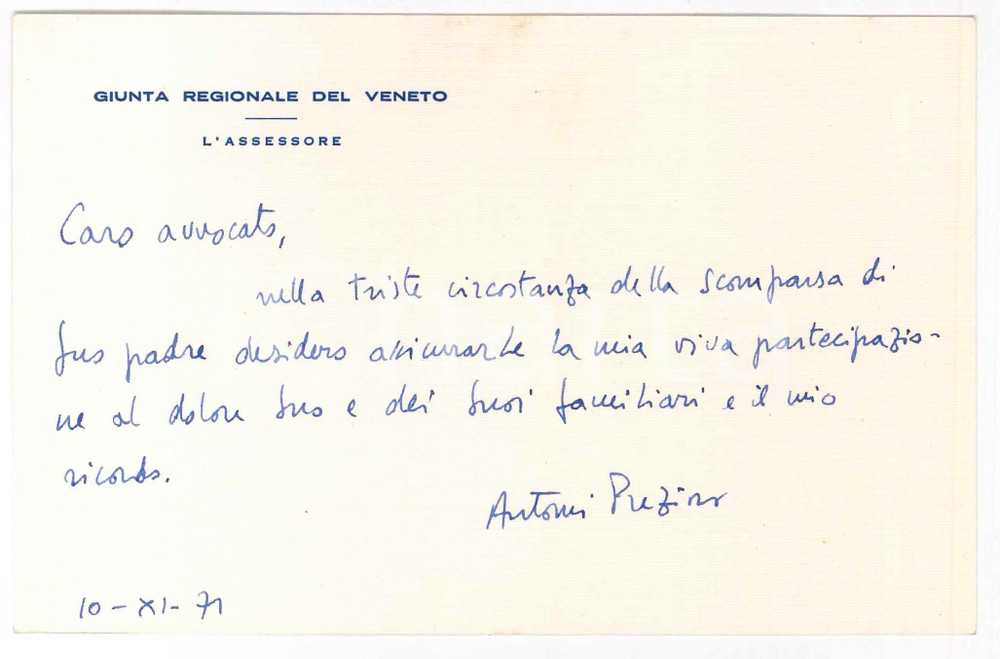 GIUNTA REGIONALE DEL VENETO
L'ASSESSORE
Caro avvocato,
nella triste circostanza della scomparsa di
suo padre desidero assicurarLe la mia viva partecipazio-
ne al dolore suo e dei suoi familiari e il mio
ricordo.
Antonio Prezioso
10-XI-71